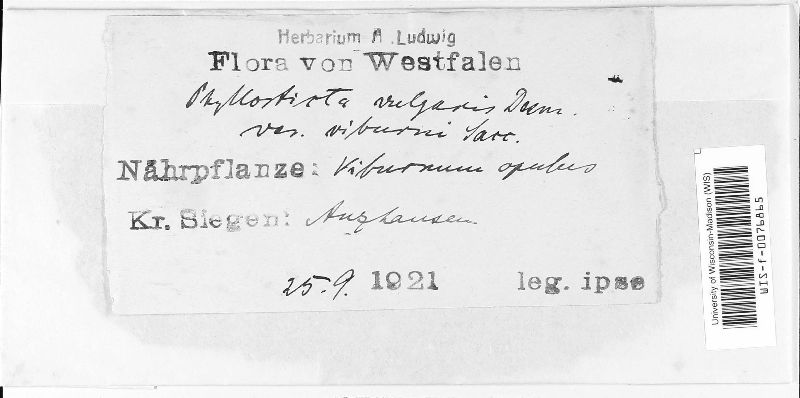 Herbarium A. Ludwig
Flora von Westfalen
Phyllosticta vulgaris Desm.
var. viburni Sacc.
Nährpflanze: Viburnum opulus
Kr. Siegen: Anzhausen
25.9. 1921 leg. ipse
University of Wisconsin-Madison (WIS)
WIS-f-0076865